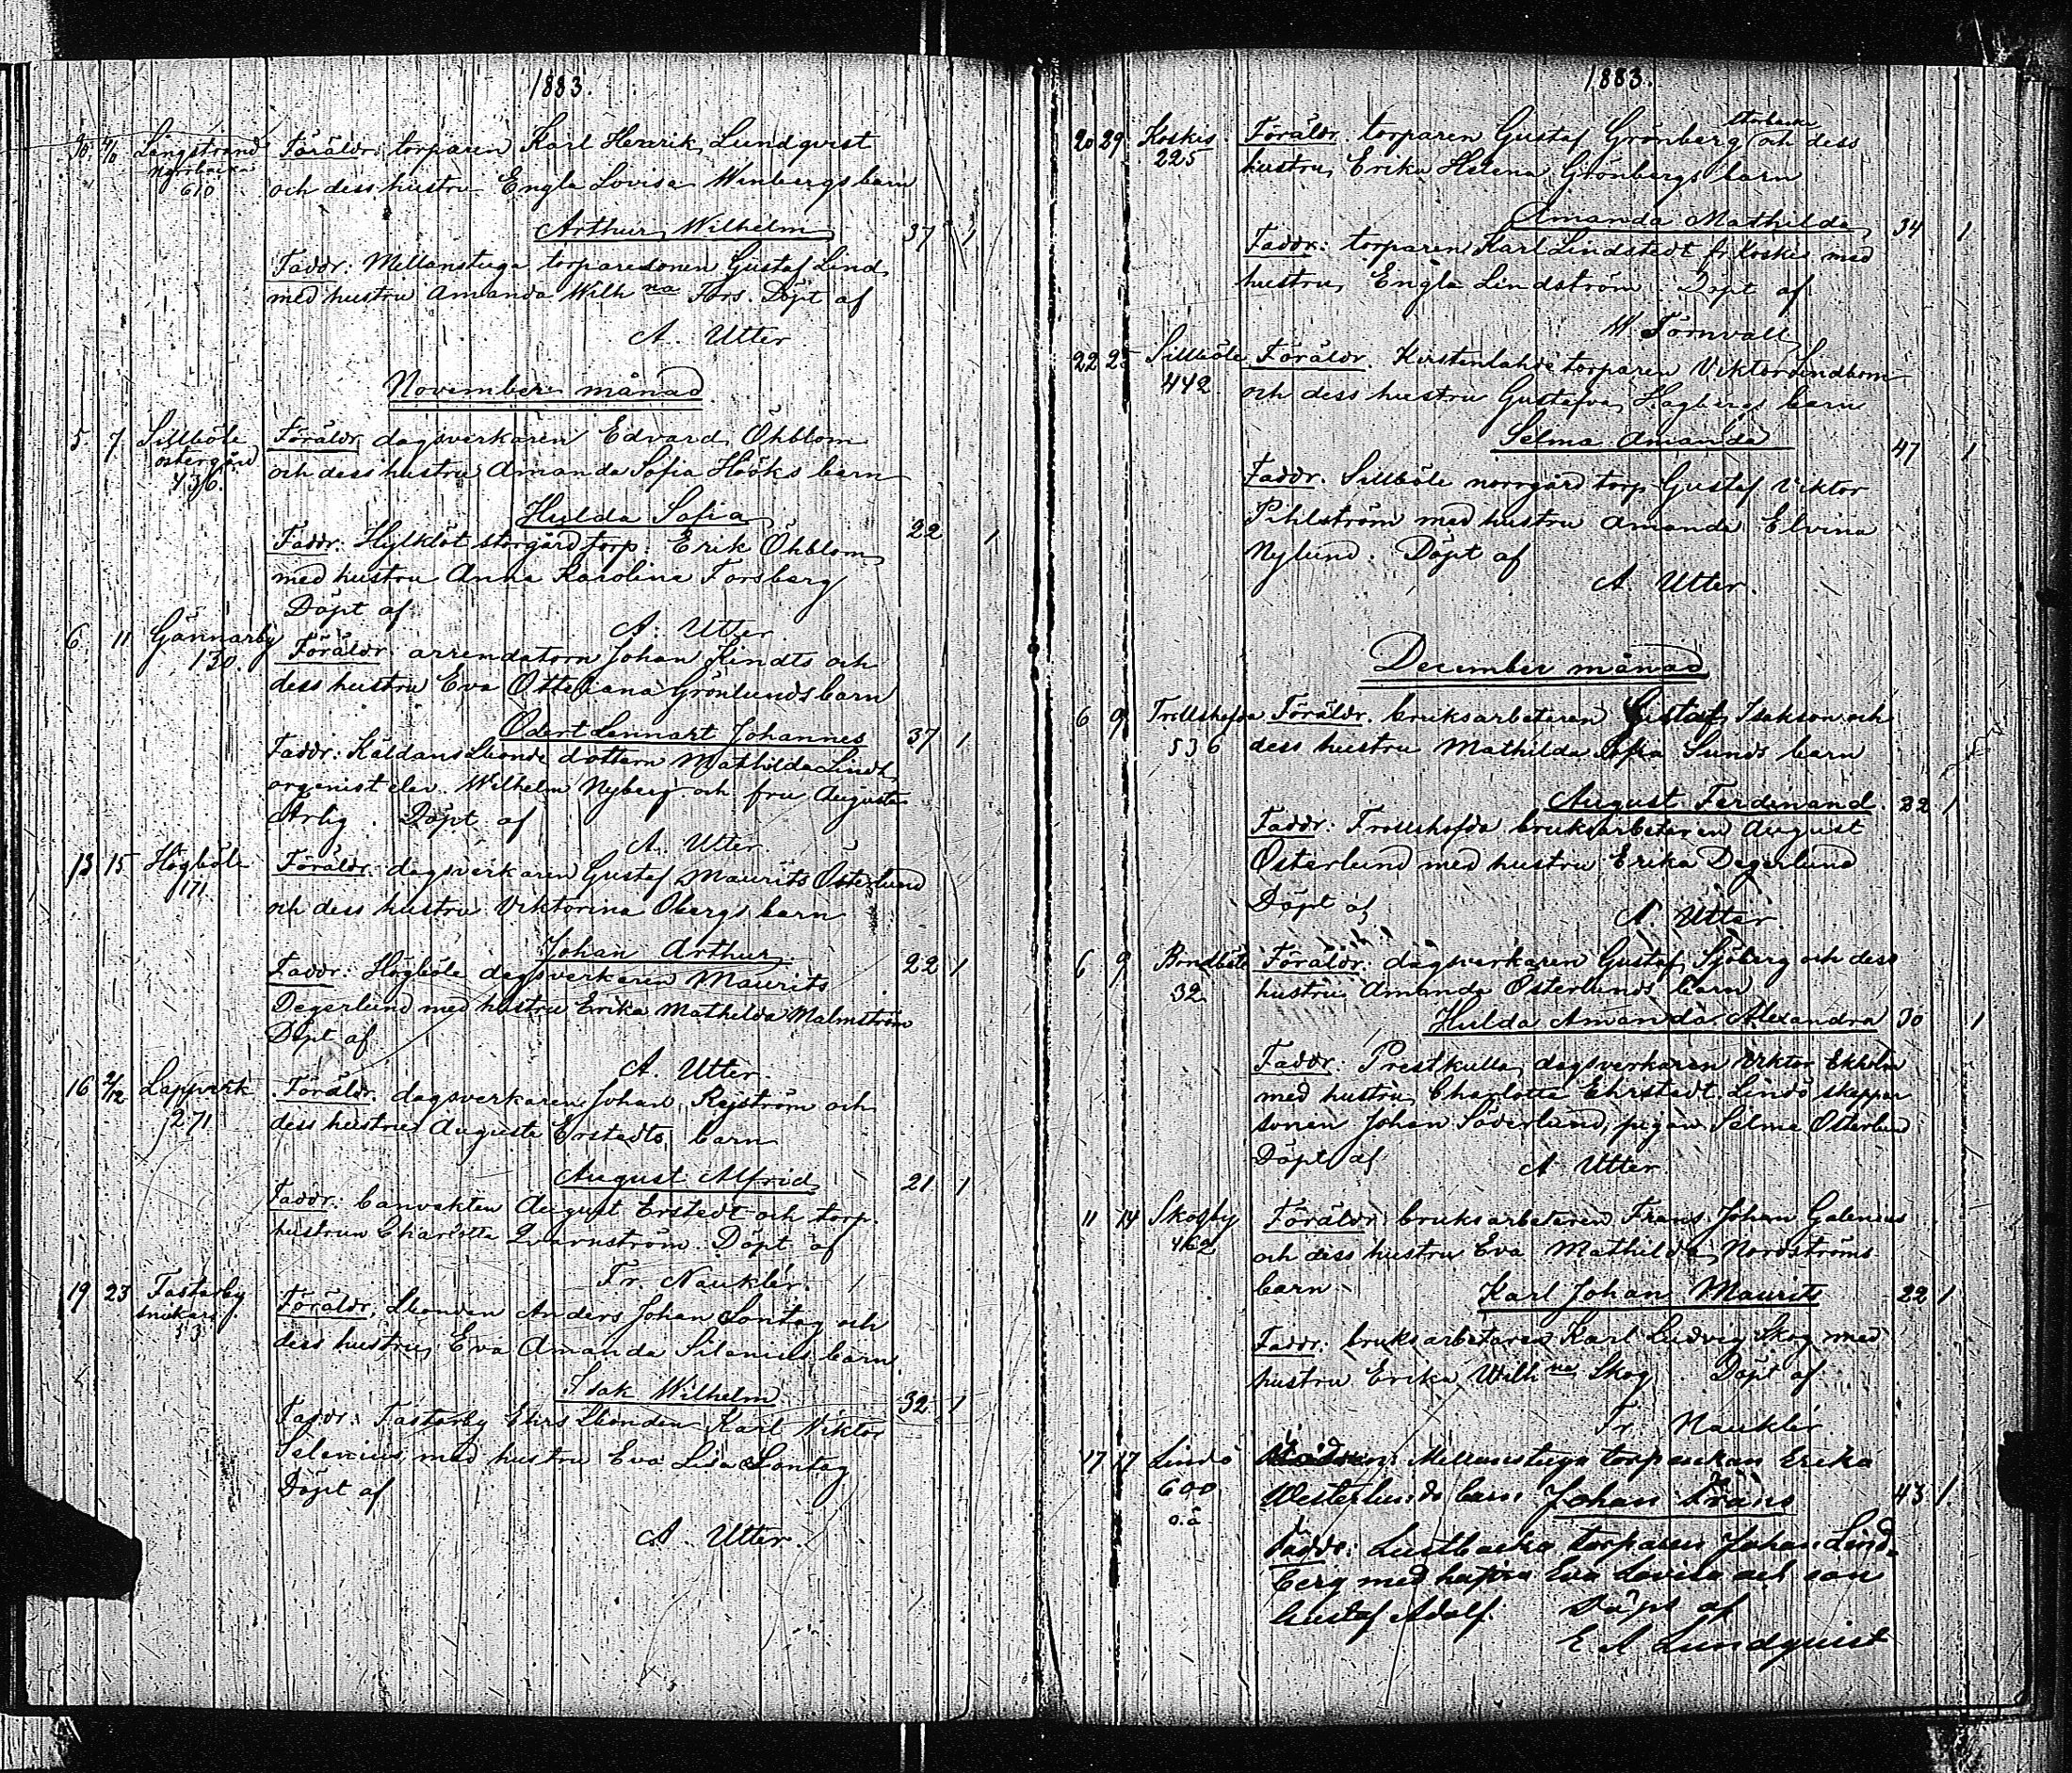 1883.
30. 4/11 Långstrand Föräldr: torparen Karl Henrik Lundqvist
610 och dess hustru Engla Lovisa Winbergs barn
Arthur Wilhelm 37 1
Faddr: Mellanstuga torparesonen Gustaf Lind
med hustru Amanda Wilh na Fors. Döpt af
A. Utter
November månad
5. 7. Sillböle Föräldr dagsverkaren Edvard Öhblom
östergård och dess hustru Amanda Sofia Hööks barn
436.
Hulda Sofia 22 1
Faddr: storgård torp: Erik Öhblom
med hustru Anna Karolina Forsberg
Döpt af
A. Utter.
6. 11 Gännarby Föräldr: arrendatorn Johan Kindts och
130. dess hustru Eva Ottiliana Grönlunds barn
Odert Lennart Johannes 37 1
Faddr: Källdans bonde dottern Mathilda Lindh,
organist elev. Wilhelm Nyberg och fru Augusta
Arlig. Döpt af
A. Utter.
13 15 Högböle Föräldr: dagsverkaren Gustaf Maurits Österlund
171 och dess hustru Viktorina Öbergs barn
Johan Arthur 22 1
Faddr: Högböle dagsverkaren Maurits
Degerlund med hustru Erika Mathilda Malmström
Döpt af
A. Utter.
16 2/12 Lappvik Föräldr. dagsverkaren Johan Rejström och
271 dess hustru Augusta Erstedts barn
August Alfrid 21 1
Faddr: banvakten August Erstedt och torp.
hustrun Charlotta Qvarnström. Döpt af
Fr. Nauklér.
19 23 Fastarby Föräldr: bonden Anders Johan Sontag och
snikars dess hustru Eva Amanda Silenius barn
53
Isak Wilhelm 32 1
Faddr: Fastarby Ehrs bonden Karl Viktor
Selenius med hustru Eva Lisa Sontag
Döpt af
A. Utter.
1883.
20 29 Koskis Föräldr. torparen Gustaf Grönberg och dess
225 hustru Erika Helena Grönbergs barn
Amanda Mathilda 34 1
Faddr: torparen Karl Lindstedt fr. Koskis med
hustru Engla Lindström. Döpt af
W Törnvall
22 25 Sillböle Föräldr. torparen Viktor Lindbom
442 och dess hustru Gustafva Hagbergs barn
Selma Amanda 47 1
Faddr. Sillböle norrgård torp Gustaf Viktor
Pihlström med hustru Amanda Elvina
Nylund. Döpt af
A. Utter.
December månad
6 9 Trollshofda Föräldr. bruksarbetaren Gustaf Isakson och
536 dess hustru Mathilda Sofia Sunds barn
August Ferdinand. 22 1
Faddr: Trollshofda bruksarbetaren August
Österlund med hustru Erika Degerlund
Döpt af
A. Utter.
6 9 Föräldr: dagsverkaren Gustaf Sjöberg och dess
32 hustru Amanda Österlunds barn
Hulda Amanda Alexandra 30 1
Faddr: Prestkulla dagsverkaren Viktor Ekholm
med hustru Charlotta Ehrstedt. Lindö skeppar
sonen Johan Söderlund, pigan Selma Österlund
Döpt af A Utter.
11 14 Skogby Föräldr: bruksarbetaren Frans Johan Galenius
462 och dess hustru Eva Mathilda Nordströms
barn Karl Johan Maurits 22 1
Faddr: bruksarbetaren Karl Ludvig Skog med
hustru Erika Wilh na Skog Döpt af
Fr. Nauklér.
17 17 Lindö Modren: Mellanstuga torparekan Erika
600 Westerlunds barn Johan Frans 43 1
o.ä.
Faddr: Lustbacka torparen Johan Lind-
berg med hustru Eva Lovisa och son
Gustaf Adolf. Döpt af
E A Lundquist